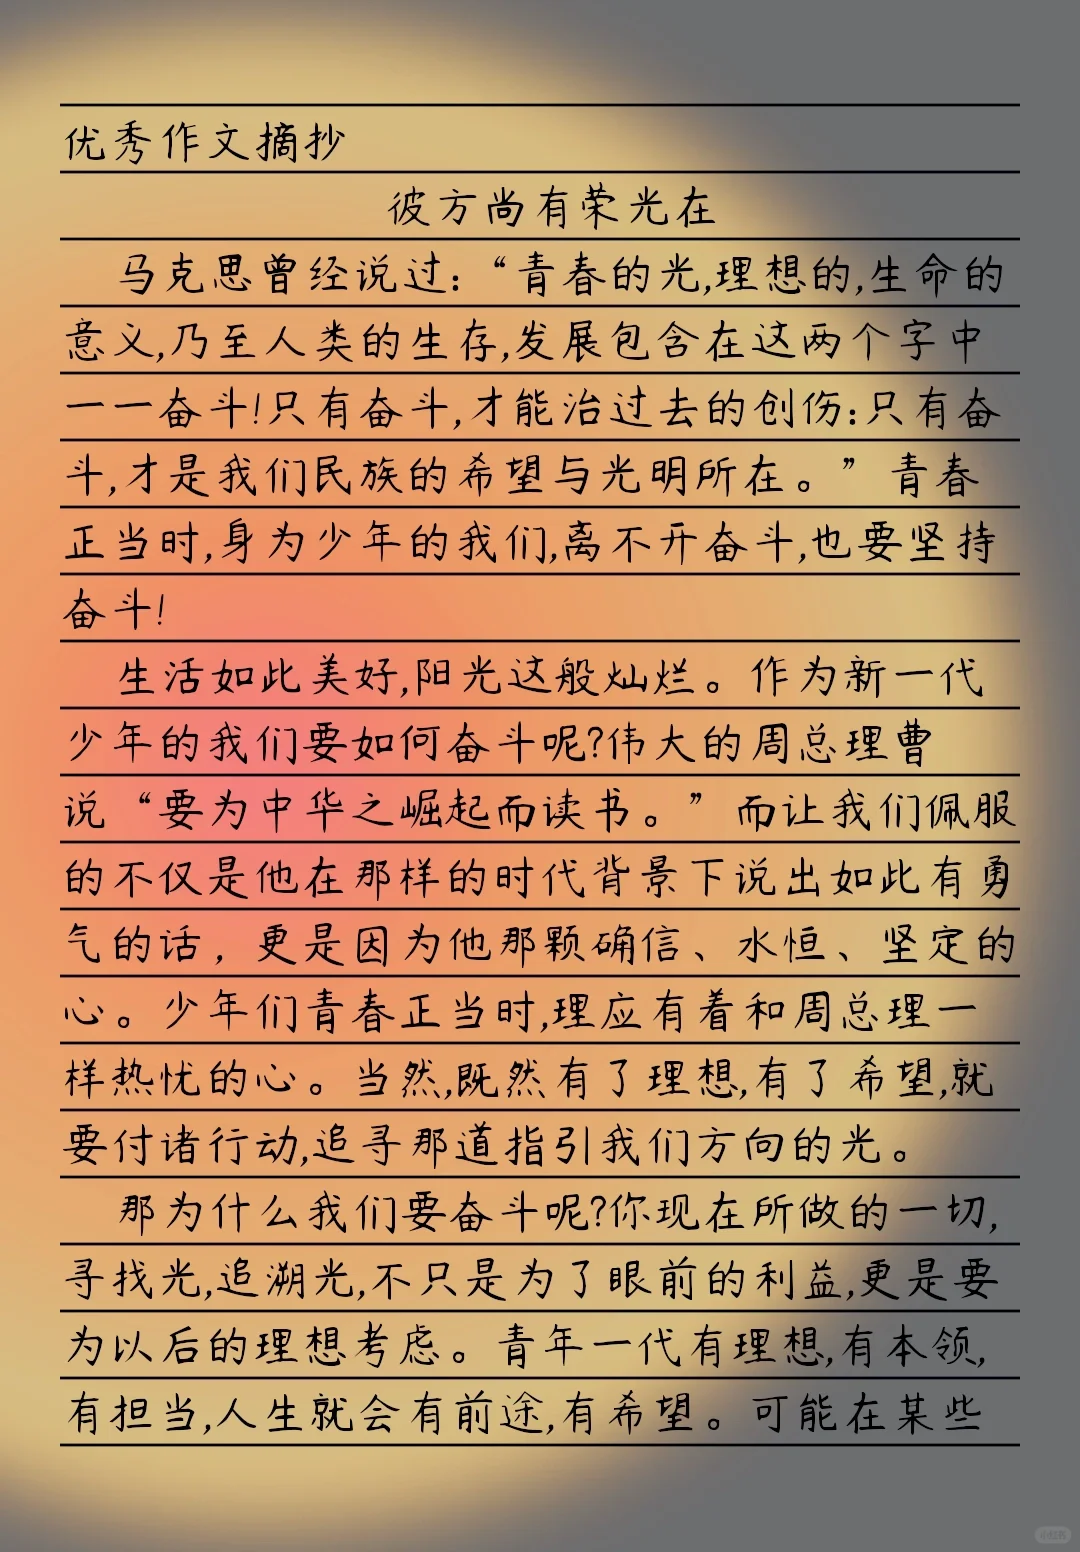 优秀作文摘抄
彼方尚有荣光在
马克思曾经说过：“青春的光,理想的,生命的
意义,乃至人类的生存,发展包含在这两个字中
一一奋斗!只有奋斗,才能治过去的创伤:只有奋
斗,才是我们民族的希望与光明所在。”青春
正当时,身为少年的我们,离不开奋斗,也要坚持
奋斗!
生活如此美好,阳光这般灿烂。作为新一代
少年的我们要如何奋斗呢?伟大的周总理曹
说“要为中华之崛起而读书。”而让我们佩服
的不仅是他在那样的时代背景下说出如此有勇
气的话，更是因为他那颗确信、水恒、坚定的
心。少年们青春正当时,理应有着和周总理一
样热忱的心。当然,既然有了理想,有了希望,就
要付诸行动,追寻那道指引我们方向的光。
那为什么我们要奋斗呢?你现在所做的一切,
寻找光,追溯光,不只是为了眼前的利益,更是要
为以后的理想考虑。青年一代有理想,有本领,
有担当,人生就会有前途,有希望。可能在某些
小红书